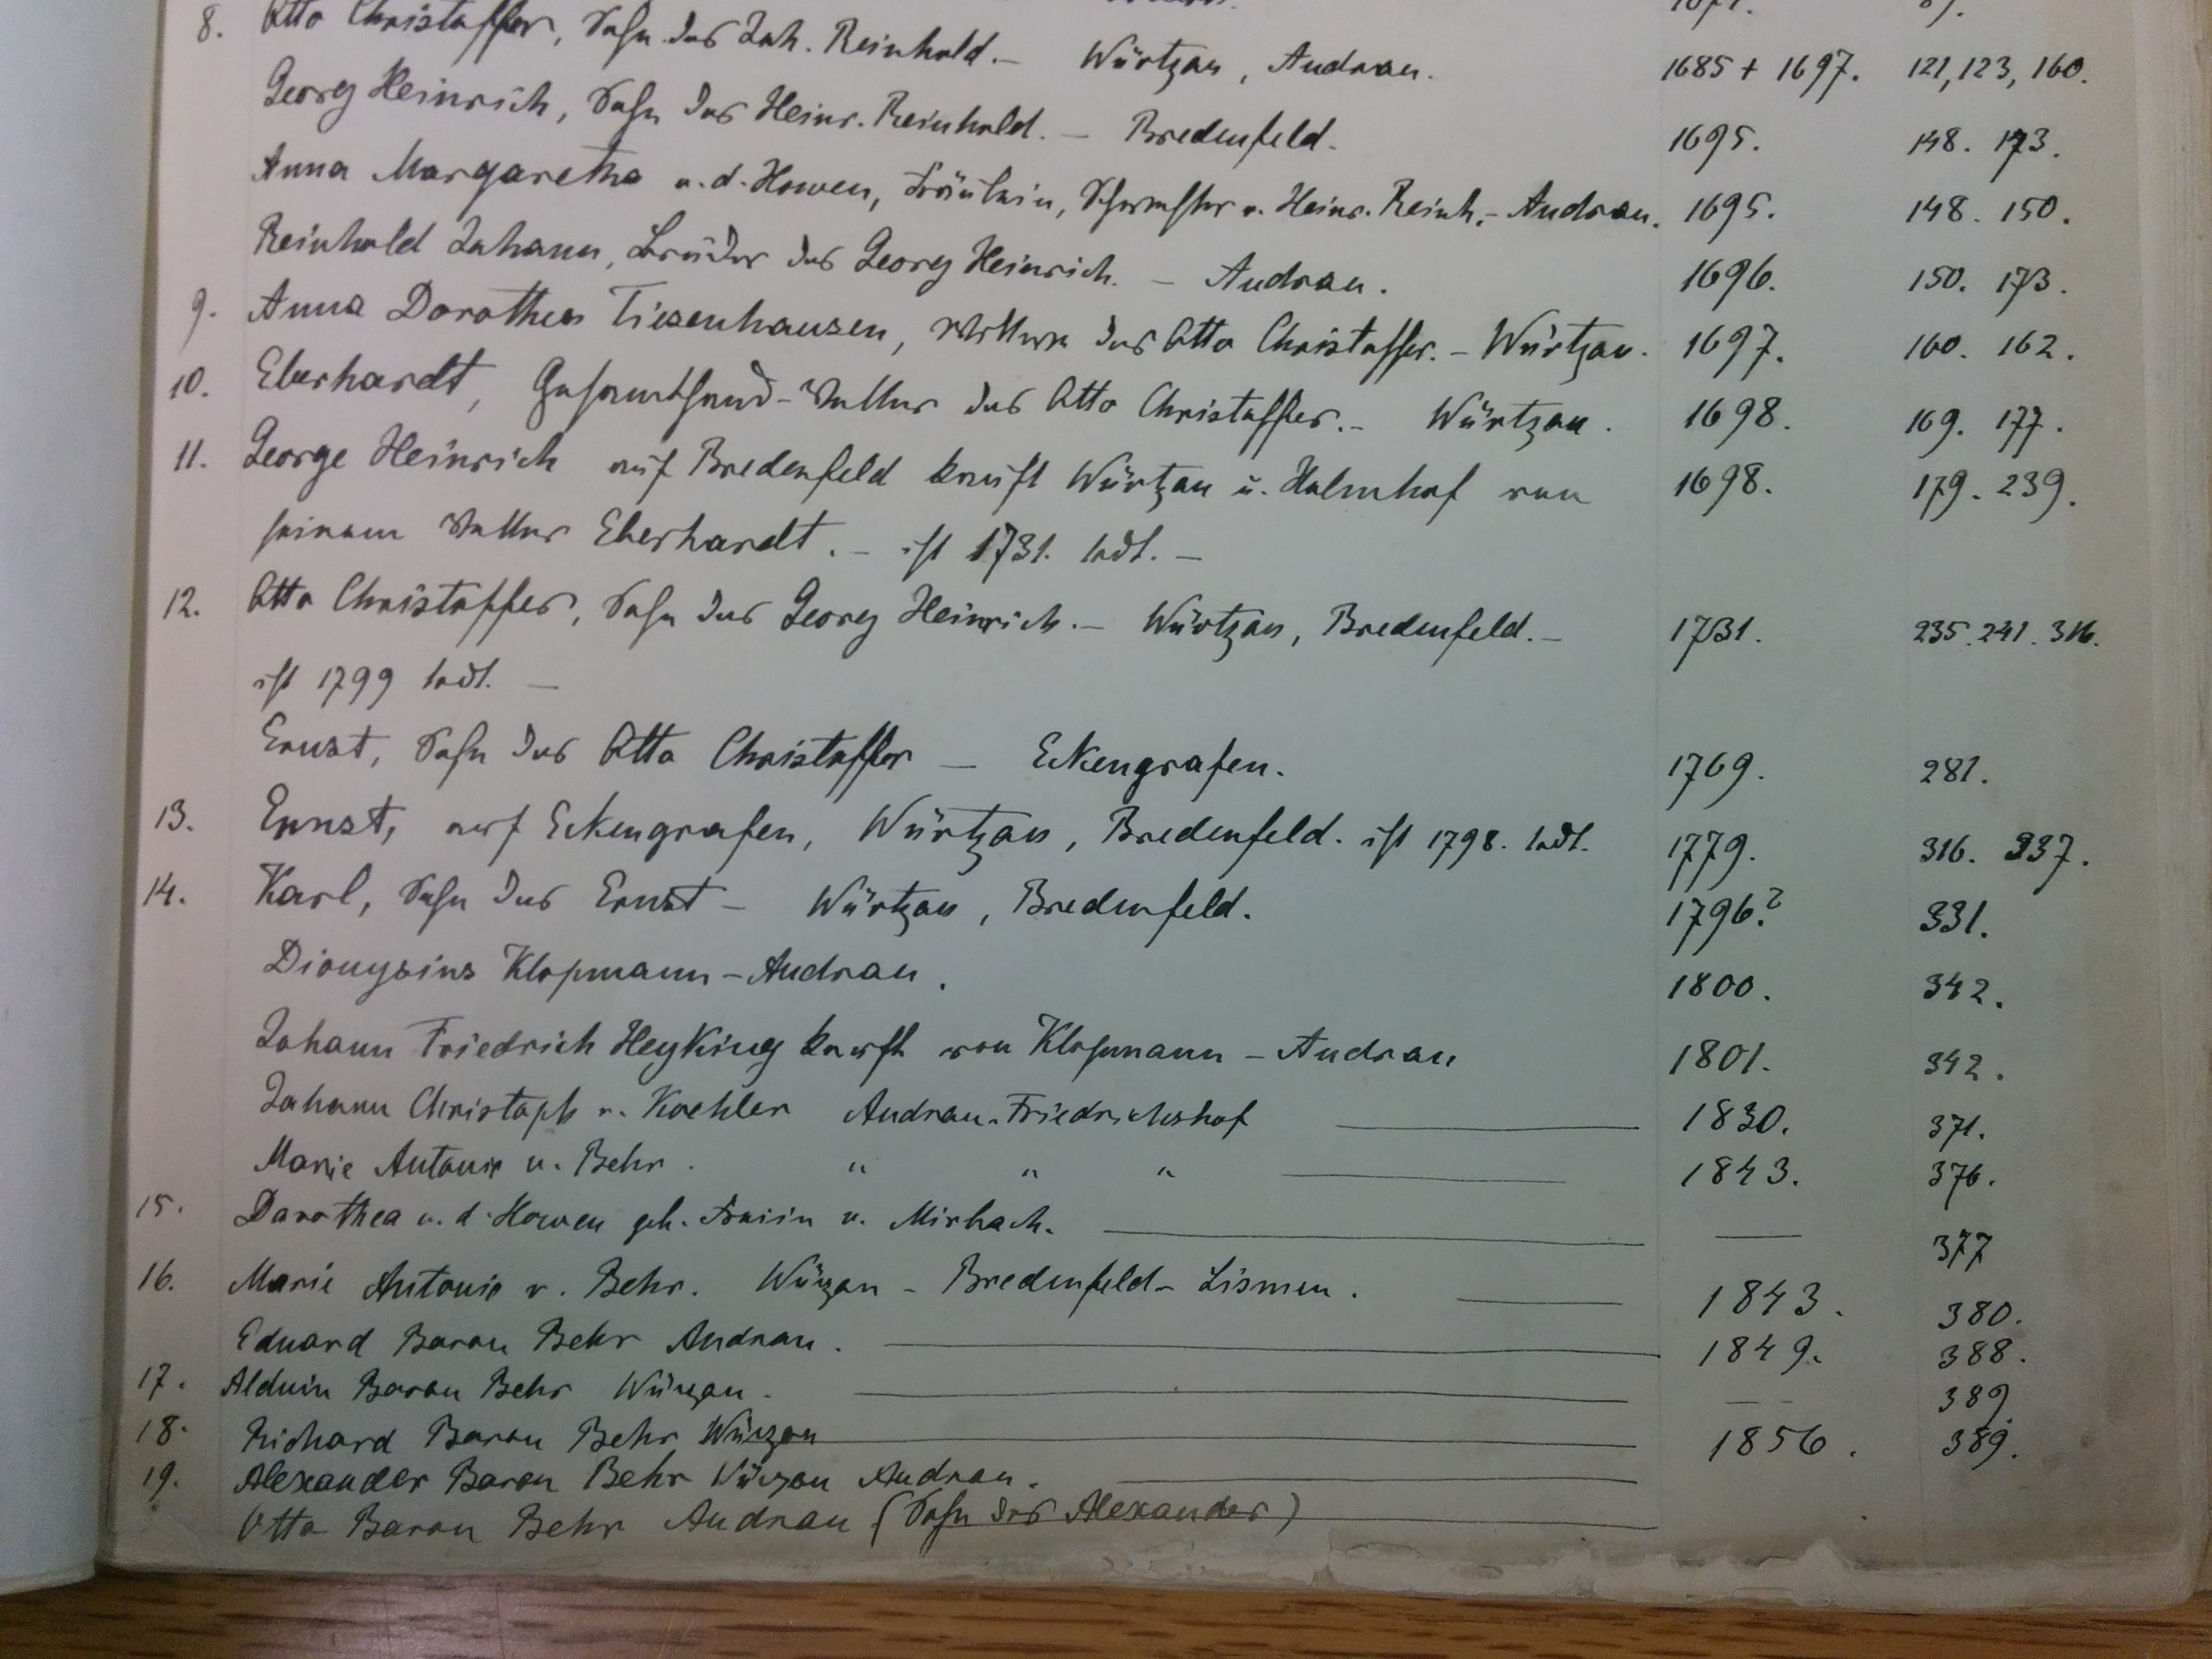 8. Otto Christoffer, Sohn des Joh. Reinhold. – Würtzau, Audrau. 1685 + 1697. 121, 123, 160.
Georg Heinrich, Sohn des Heinr. Reinhold. – Bredenfeld. 1695. 148. 173.
Anna Margaretha v. d. Howen, Fräulein, Schwester v. Heinr. Reinh. – Audrau. 1695. 148. 150.
Reinhold Johann, Bruder des Georg Heinrich. – Audrau. 1696. 150. 173.
9. Anna Dorothea Tiesenhausen, Wittwe des Otto Christoffer. – Würtzau. 1697. 160. 162.
10. Eberhardt, Gesamthand-Vetter des Otto Christoffer. – Würtzau. 1698. 169. 177.
11. George Heinrich auf Bredenfeld kauft Würtzau u. Holmhof von 1698. 179. 239.
seinem Vetter Eberhardt. – ist 1731. todt. –
12. Otto Christoffer, Sohn des Georg Heinrich. – Würtzau, Bredenfeld. – 1731. 235. 241. 316.
ist 1799 todt. –
Ernst, Sohn des Otto Christoffer – Eckengrafen. 1769. 281.
13. Ernst, auf Eckengrafen, Würtzau, Bredenfeld. ist 1798. todt. 1779. 316. 337.
14. Karl, Sohn des Ernst – Würtzau, Bredenfeld. 1796.? 331.
Dionysius Klopmann – Audrau. 1800. 342.
Johann Friedrich Heyking kauft von Klopmann – Audrau 1801. 342.
Johann Christoph v. Koehler Audrau-Friedrichshof — 1830. 371.
Marie Antonie v. Behr. " " " — 1843. 376.
15. Dorothea v. d. Howen geb. Freiin v. Mirbach. — — 377
16. Marie Antonie v. Behr. Würzau – Bredenfeld – Lismen. — 1843. 380.
Eduard Baron Behr Audrau. — 1849. 388.
17. Alduin Baron Behr Würzau. — — — 389
18. Richard Baron Behr Würzau — 1856. 389.
19. Alexander Baron Behr Würzau Audrau. —
Otto Baron Behr Audrau (Sohn des Alexander) —